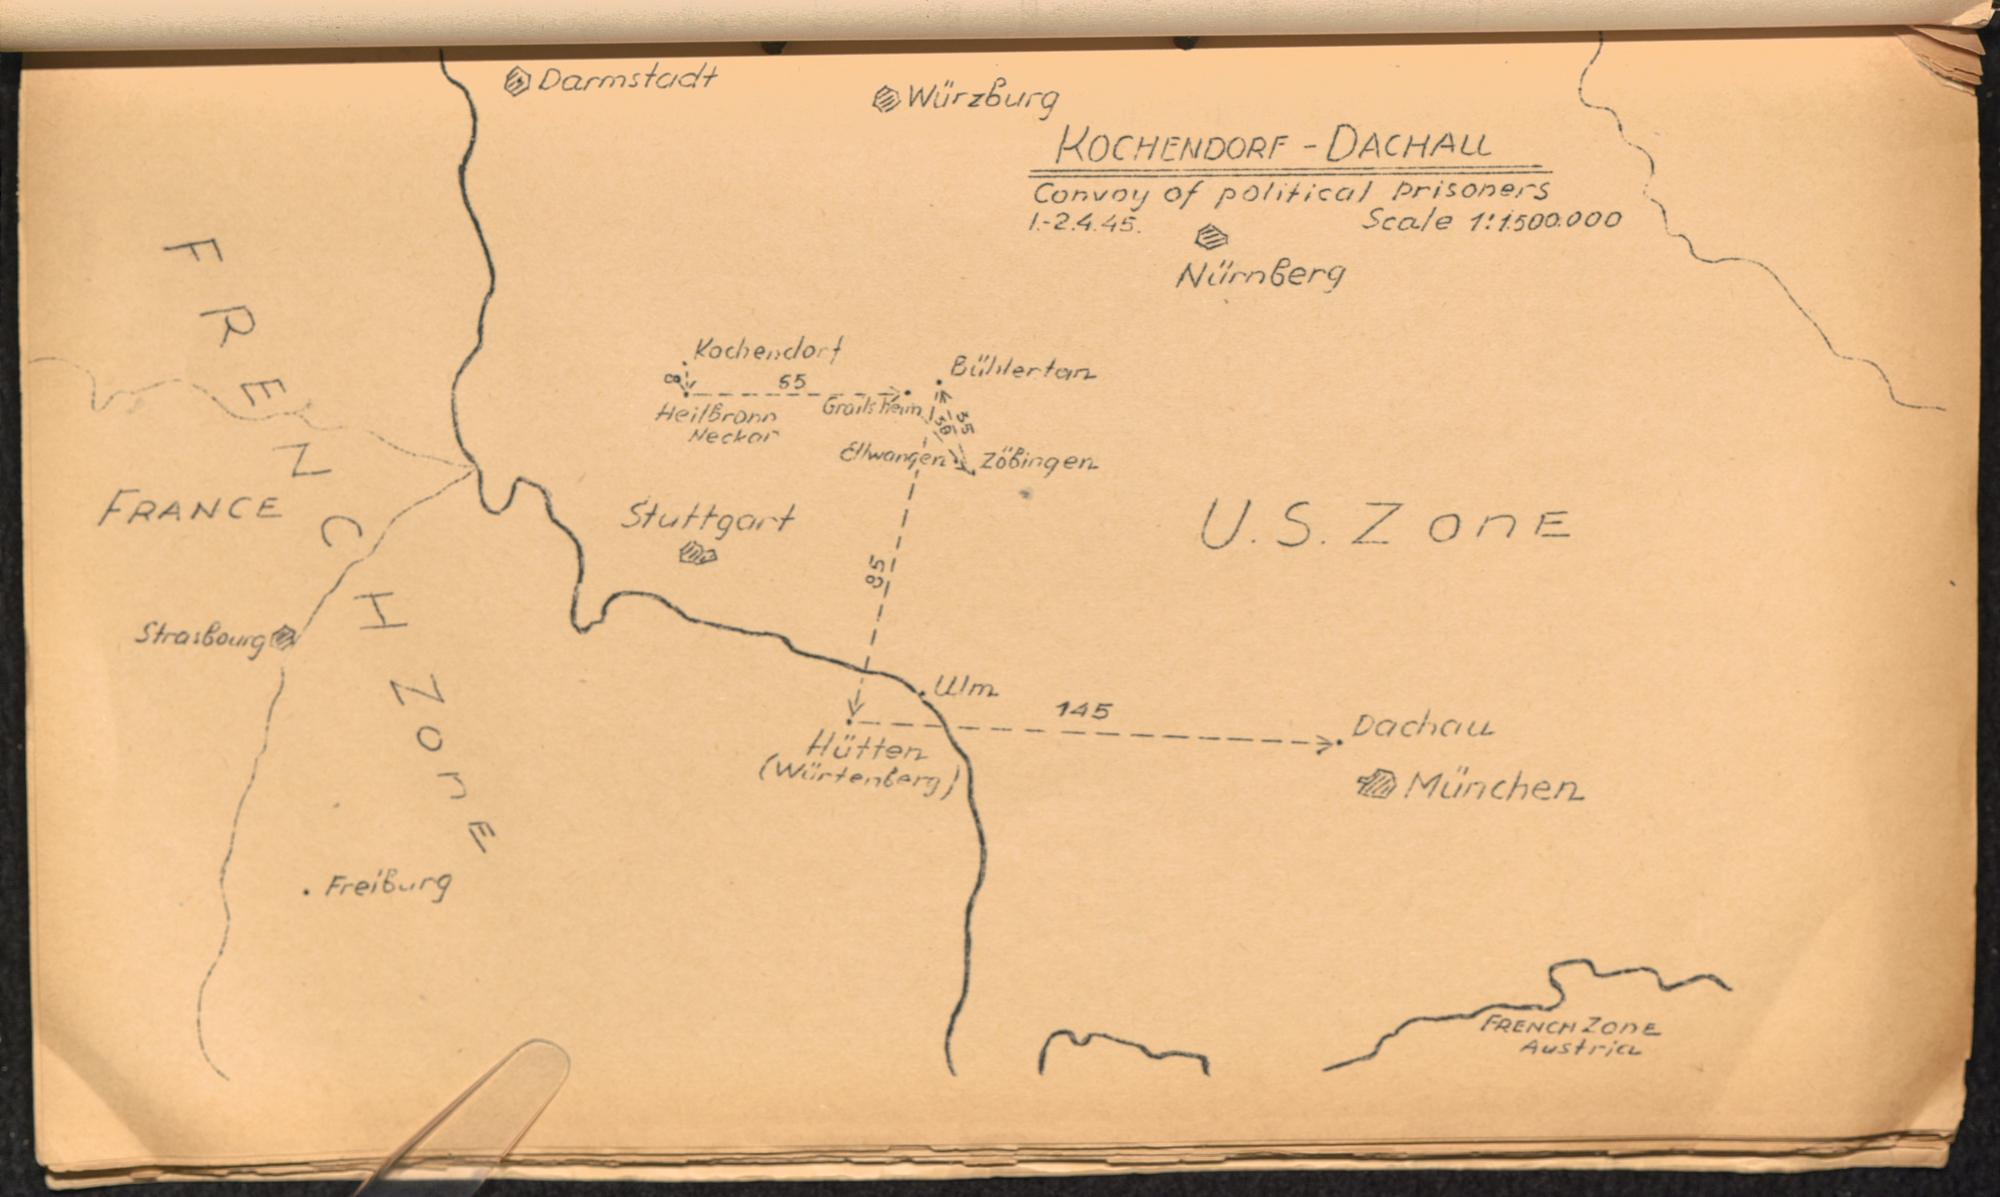 Darmstadt
Würzburg
KOCHENDORF - DACHAU
Convoy of political prisoners
1.-2.4.45. Scale 1:1.500.000
Nürnberg
FRENCH ZONE
Kochendorf
8
65
Bühlertan
Heilbronn
Neckar
Grailsheim
55
Ellwangen
Zöbingen
FRANCE
Stuttgart
U.S. ZONE
85
Strasbourg
Ulm
145
Dachau
Hütten
(Würtenberg)
München
Freiburg
FRENCH ZONE
Austria